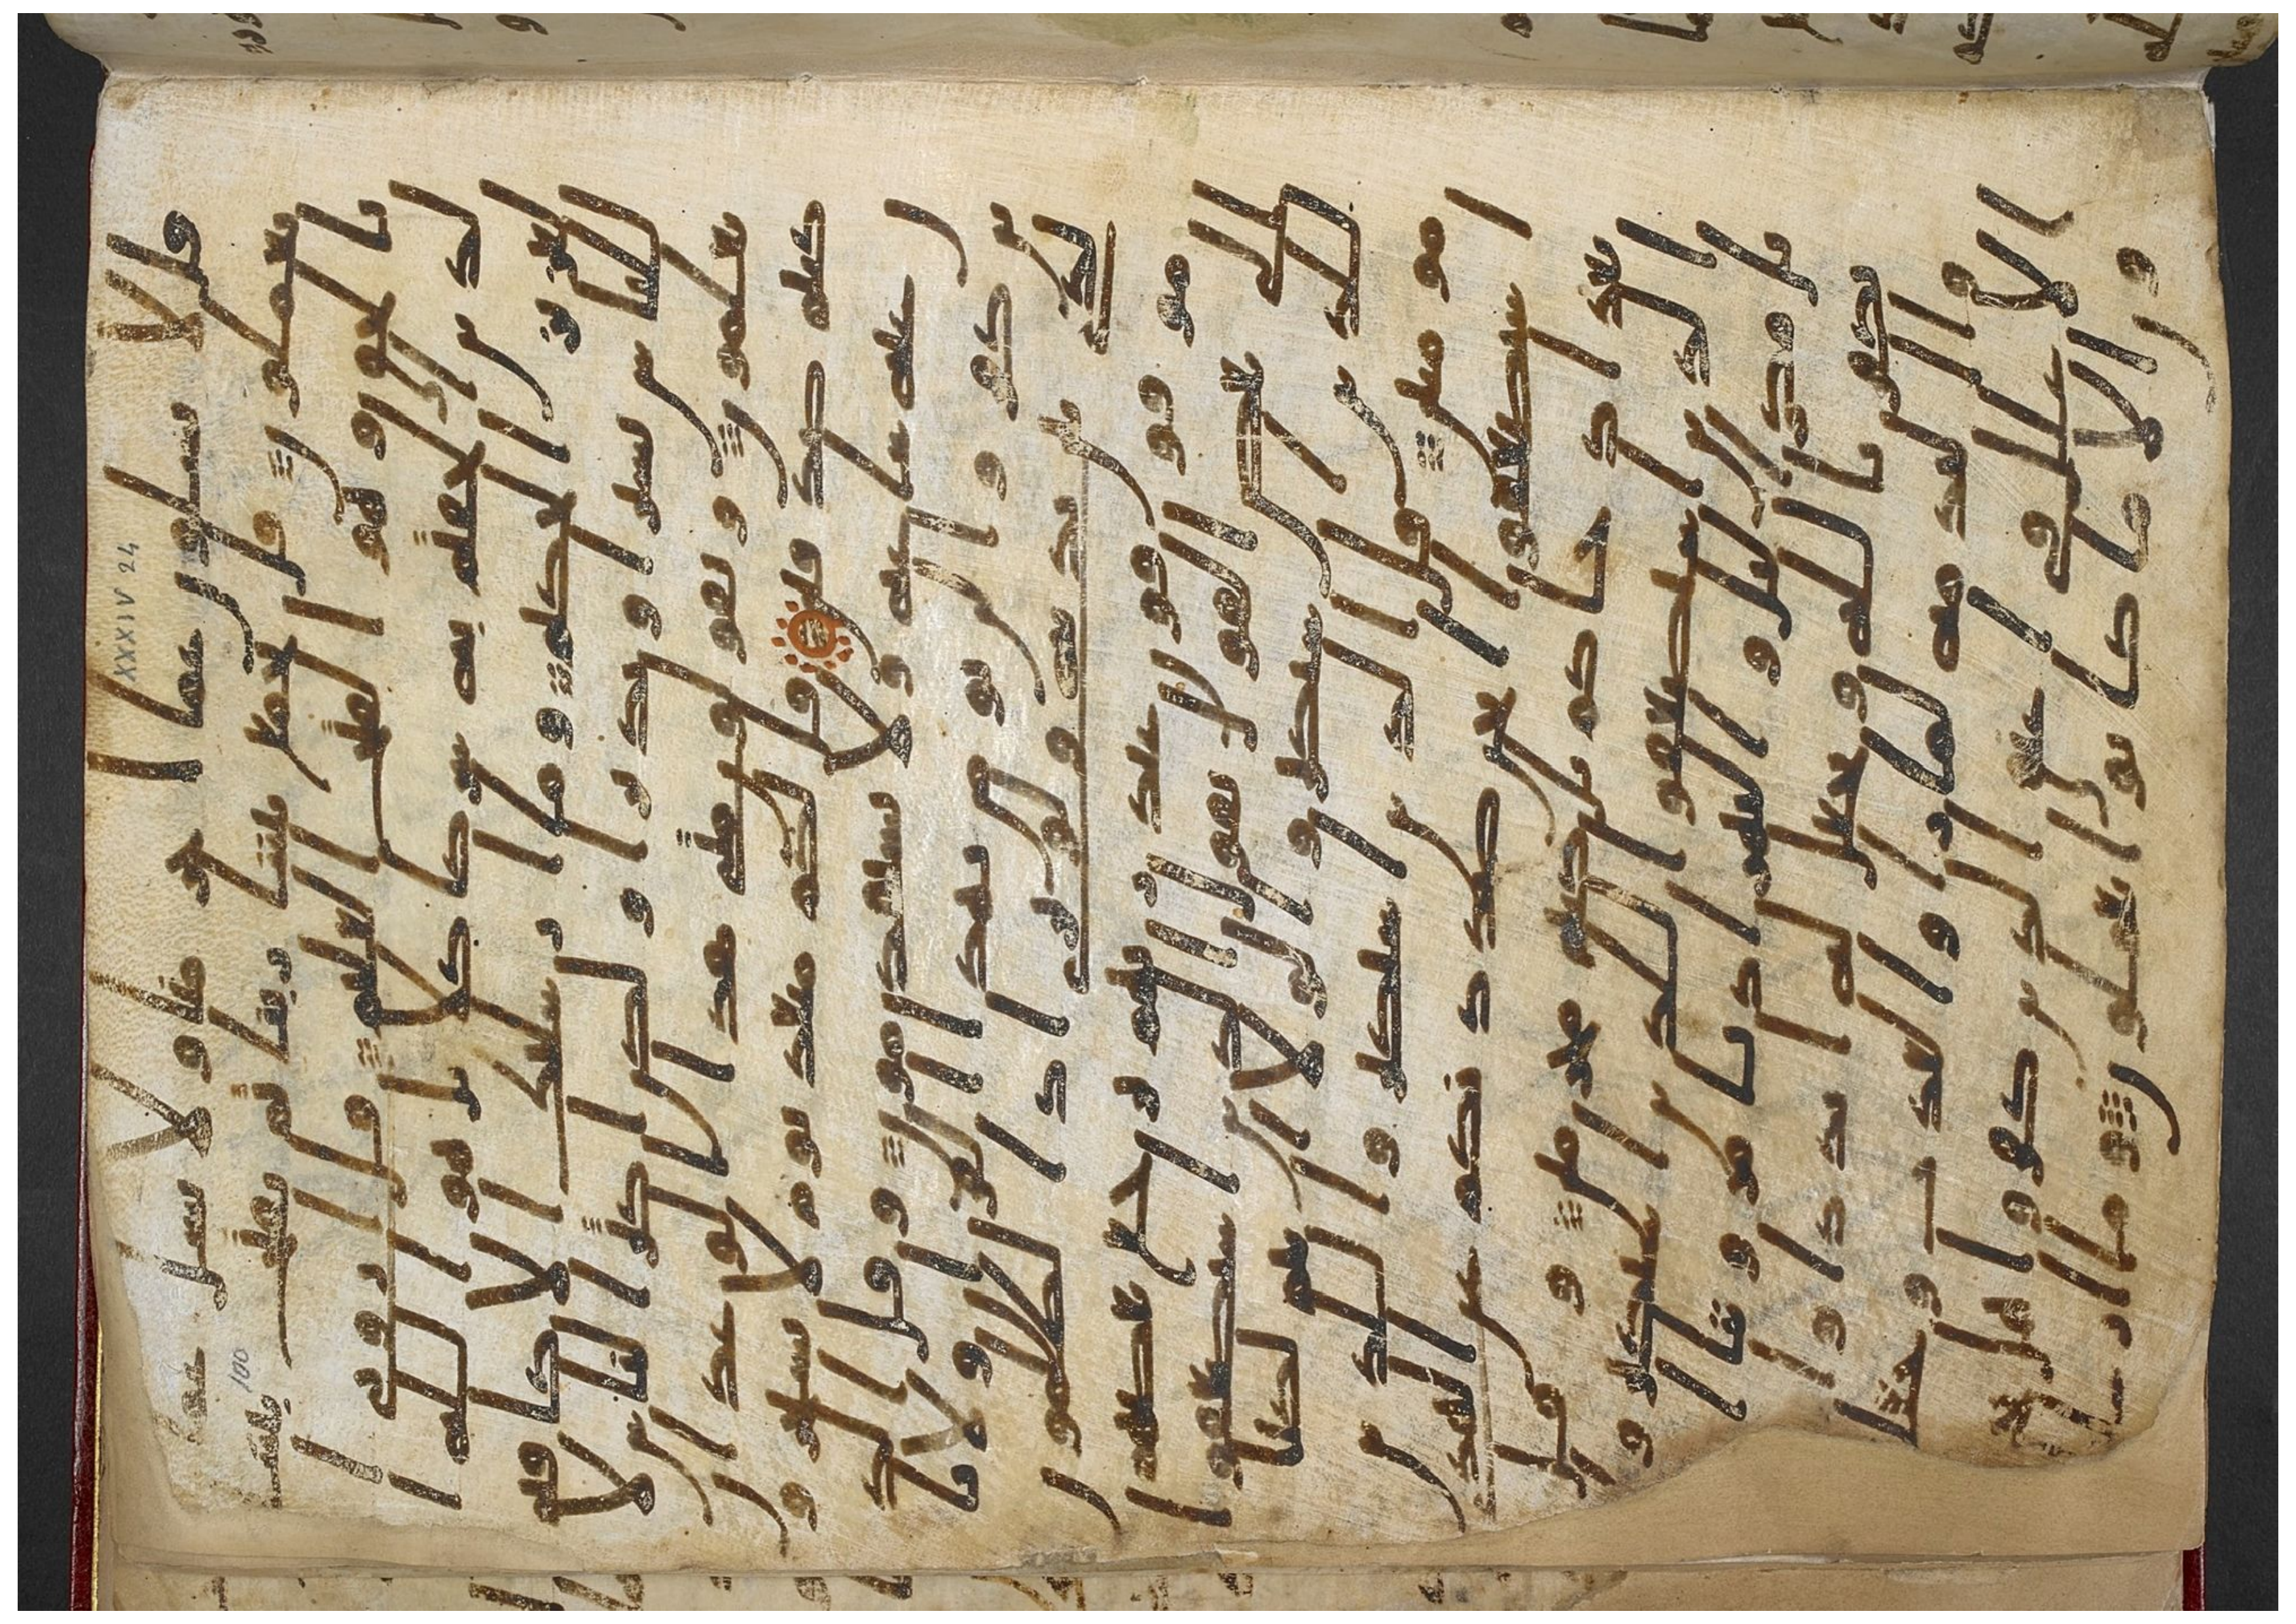 قل لا تسلون عما اجرمنا ولا نسل عما
تعملون قل يجمع بيننا ربنا ثم يفتح بيننا
بالحق وهو الفتاح العليم قل ارونى ا
لذين الحقتم به شركا كلا بل هو الله ا
لعزيز الحكيم وما ارسلنك الا كافة
للناس بشيرا ونذيرا ولكن اكثر الناس لا
يعلمون ويقولون متى هذا الوعد ان
كنتم صدقين قل لكم ميعد يوم لا تستخرو
ن عنه ساعة ولا تستقدمون وقل الذ
ين كفروا لن نومن بهذا القران ولا با
لذى بين يديه ولو ترى اذ الظلمو
ن موقوفون عند ربهم يرجع بعضهم ا
لى بعض القول يقول الذين استضعفو
ا للذين استكبروا لولا انتم لكنا
مومنين قل الذين استكبروا للذين
استضعفوا انحن صددنكم عن الهد
ى بعد اذ جاكم بل كنتم مجرمين وقل
الذين استضعفوا للذين استكبروا
بل مكر اليل والنهر اذ تامروننا ا
ن نكفر بالله ونجعل له اندادا وا
سروا الندامة لما راوا العذب وجعلنا
الاغلل فى اعنق الذين كفروا هل يجز
ون الا ما كانوا يعملون وما ارسلنا
XXXIV 24
100